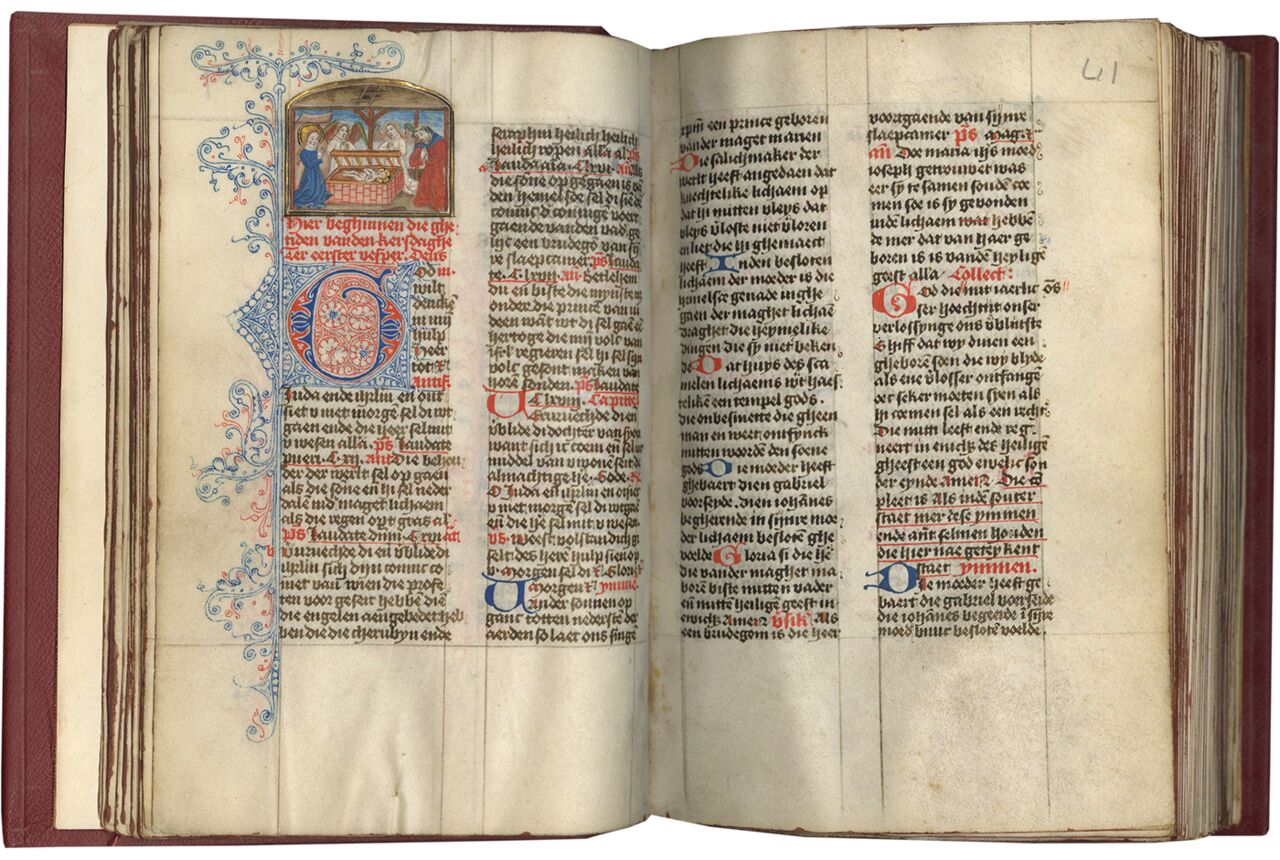 Hier beghinnen die ghe
tiden vanden kersdaghe
Ter eerster vesper. Deus
God in
wilt
dencke
in mij
hulp
Heer
tot
Antif.
Juda ende ihrlm en ont
siet v niet morge sel di wt
gaen ende die heer sel mit
v wesen alla. ps Laudate
pueri. Cxij. Ant Die behou
der der werlt sel op gaen
als die sone en hi sel neder
dalen ind maget lichaem
als die regen opt gras al
ps Laudate dnm. Cxvi an
Vervruechde di en vblide di
ihrlm sich dijn coninc co
met van wien die profe
ten voer geseit hebbe die
die engelen aengebedet heb
ben die die cherubyn ende
seraphin heilich heilich
heilich ropen alla al ps
Lauda aia. Clxvi. An Als
die sone op gegaen is va
den hemel soe sel di sien de
coninc d coninge voert
gaende vanden vad ge
lijc een brudegs van sij
re slaepcamer. ps Lauda
te. Clxvii. an Betlehem
du en biste die mynste n
onder die prince van iu
deen want wt di sel gaen een
hertoge die mij volc van
isrl regieren sel hi sel sijn
volc gesont maken van
horen sonden. ps Laudate
Clxviij. Capittel
Vervruechde di en
vblide di dochter van syon
want sich ic coem en sel in
middel van v wone seit de
almachtige he. Gode.
O Juda en ihrlm en ontsiet
v niet morgen sel di wtgaen
en die he sel mit v wesen
vs. weest volstandich gi
selt des here hulp sien op
v. morgen sel di Glori
Morgen ymme.
Vander sonnen op
ganc totten nederste der
aerden so laer ons singe
xpm een prince geboren
vander maget marien
Die salichmaker der
werlt heeft angedaen dat
knechtelike lichaem op
dat hi mitten vleys dat
vleys vloste niet vloren
en liet die hi ghemaect
heeft In den besloten
lichaem der moeder is die
hemelsce genade inghe
gaen der maghet lichae
draghet die heymelike
dingen die sy niet beken
de Dat huys des sca
melen lichaems wort haes
telike een tempel gods.
die onbesmette die gheen
man en weet ontfynck
mitten woorde den soene
gods Die moeder heeft
ghebaert dien gabriel
voerseyde. dien iohannes
begherende in sijnre moe
der lichaem beslote ghe
voelde Gloria si die he
die vander maghet ma
boren biste mitten vader
en mitte heilige geest in
ewich Amen vsik. Als
een brudegom is die heer
voortgaende van sijnre
slaepcamer ps magt
an Doe maria ihs moed
ioseph getrouwet was
eer sy te samen soude co
men soe is sy gevonden
inde lichaem wat hebbe
de mer dat van haer ge
boren is is vande heylige
geest alla. Collect:
God die mit iaerlic os
ser hoechtit onser
verlossynge ons vblidste
Ghiff dat wy dinen een
ghebore soen die wy blyde
als ene vlosser ontfange
oec seker moeten syen als
hi comen sel als een rech
Die mitti leeft ende reg
neert in enich des heilige
gheest een god ewelic son
der eynde Amen. Die co
pleet is Als inde souter
staet mer dese ymmen
ende ant selmen houden
die hier nae geteykent
staet ymmen.
Die moeder heeft ge
baert die gabriel voerseide
die iohanes begeende i sijnre
moed buuc beslote voelde.
41